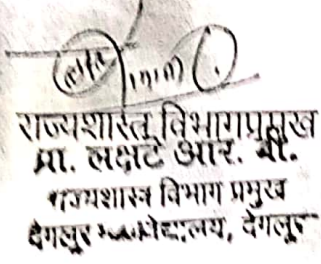 राज्यशास्त्र विभागप्रमुख
प्रा. लक्षटे आर. बी.
राज्यशास्त्र विभाग प्रमुख
देगलूर महाविद्यालय, देगलूर